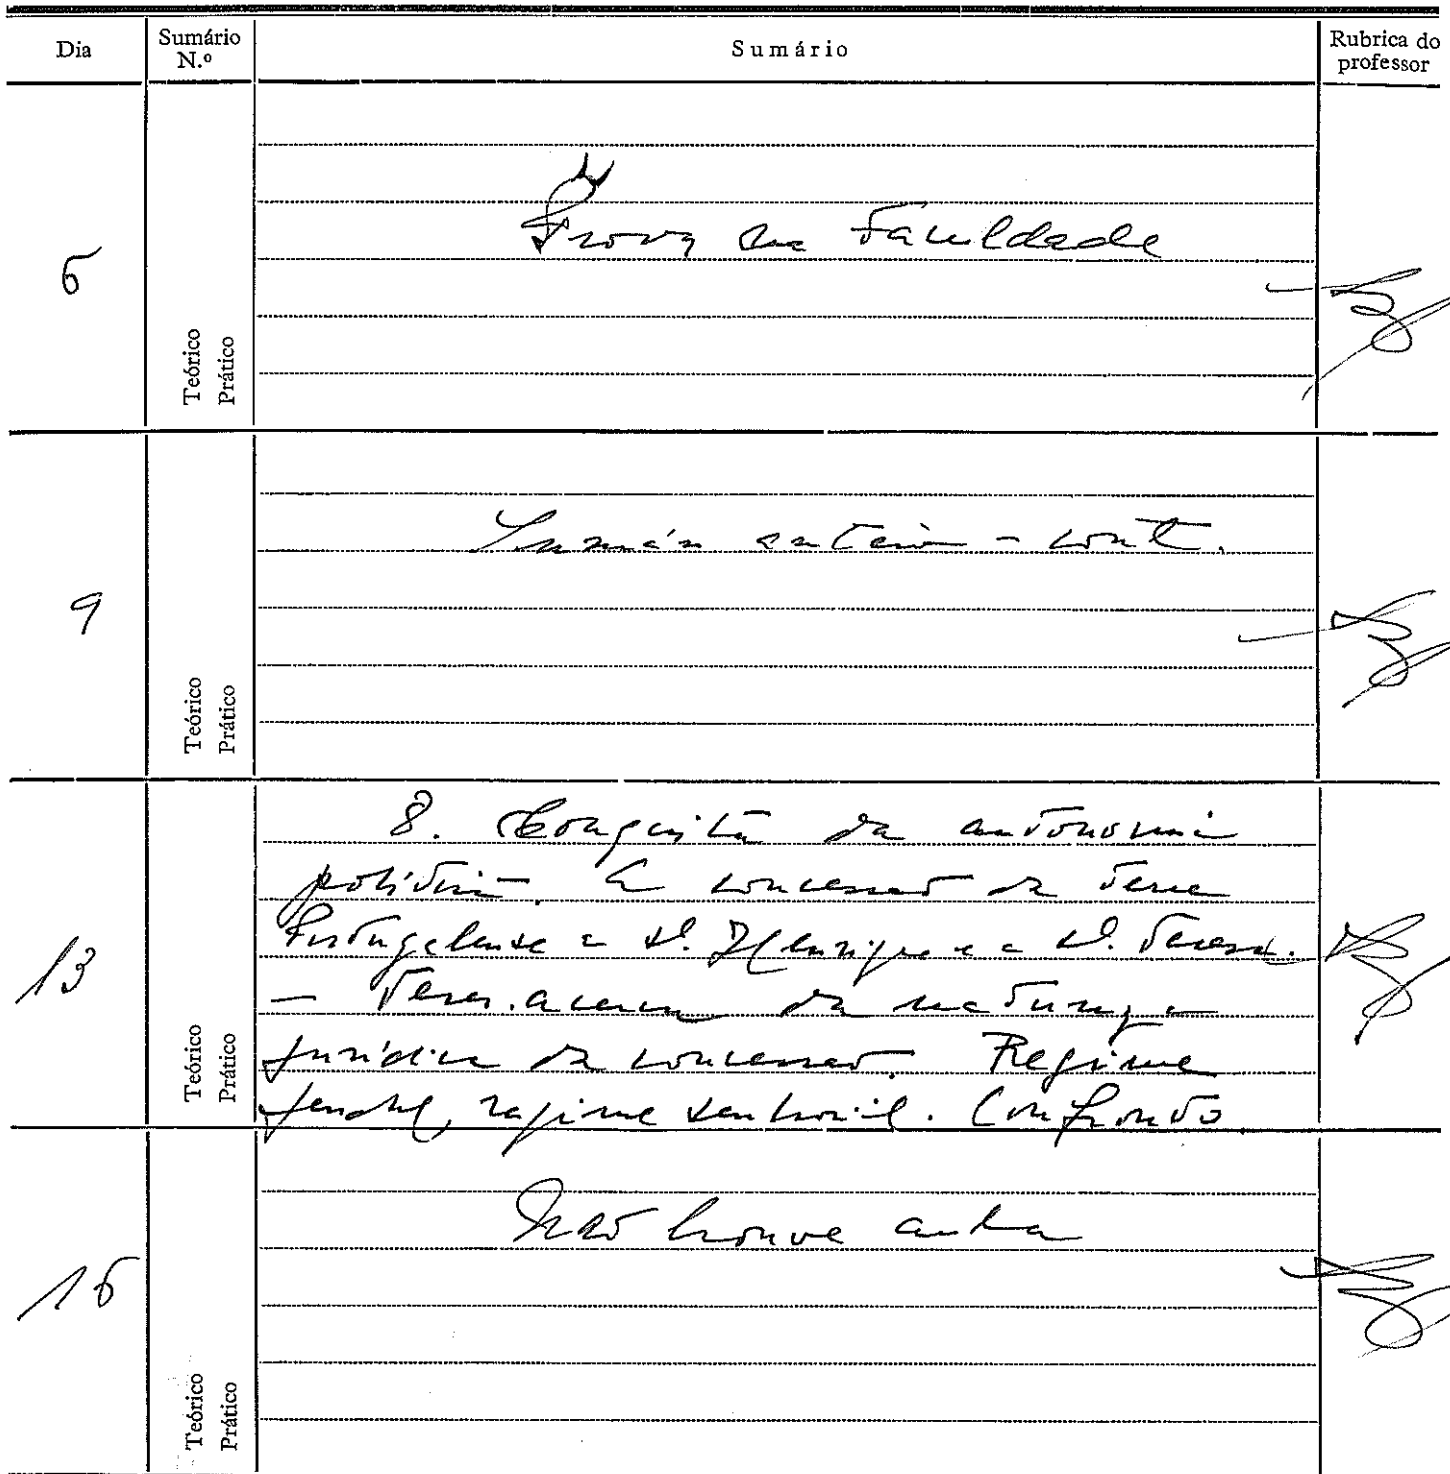 Dia
Sumário N.º
Sumário
Rubrica do professor
6
Teórico
Prático
Prova na Faculdade
9
Teórico
Prático
Sumário anterior - cont.
13
Teórico
Prático
8. Conquista da autonomia
política. A concessão da Terra
Portugalense a D. Henrique e a D. Teresa.
— Teses acerca da natureza
jurídica da concessão. Regime
feudal, regime senhorial. Confronto
16
Teórico
Prático
Não houve aula